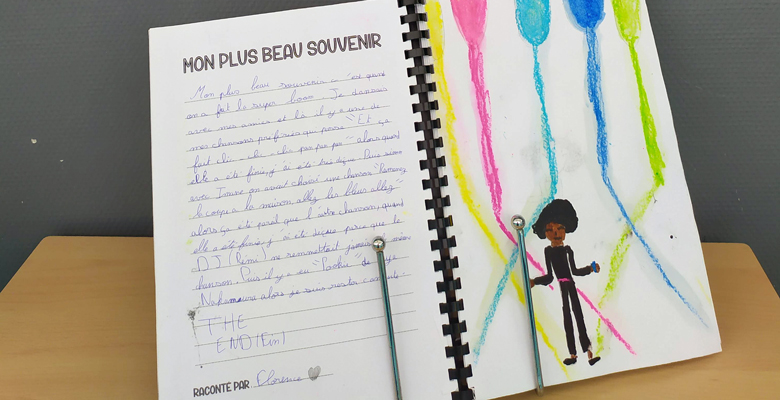 MON PLUS BEAU SOUVENIR
Mon plus beau souvenir c'est quand
on a fait le super boum. Je dansais
avec mes amies et là il y a une de
mes chansons préférées qui passe "Et ça
fait alors quand
elle a été finie, j'ai été très déçue. Puis
avec on avait choisi une chanson "Ramenez
la coupe à la maison allez les bleus allez"
alors ça été pareil que l'autre chanson, quand
elle a été finie, j'ai été déçue parce que le
DJ (Rémi) ne remmettait jamais la même
chanson. Puis il y a eu "Pookie" de Aya
Nakamura alors je suis restée contente.
THE
END (Fin)
RACONTÉ PAR Florence